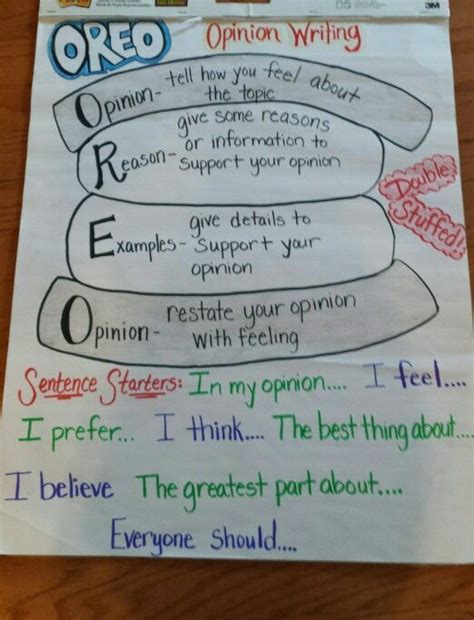 3M
OREO Opinion Writing
Opinion- tell how you feel about
the topic
Reason- give some reasons
or information to
support your opinion
Double
Stuffed!
Examples- give details to
support your
opinion
Opinion- restate your opinion
with feeling
Sentence Starters: In my opinion.... I feel....
I prefer... I think.... The best thing about....
I believe The greatest part about....
Everyone should....